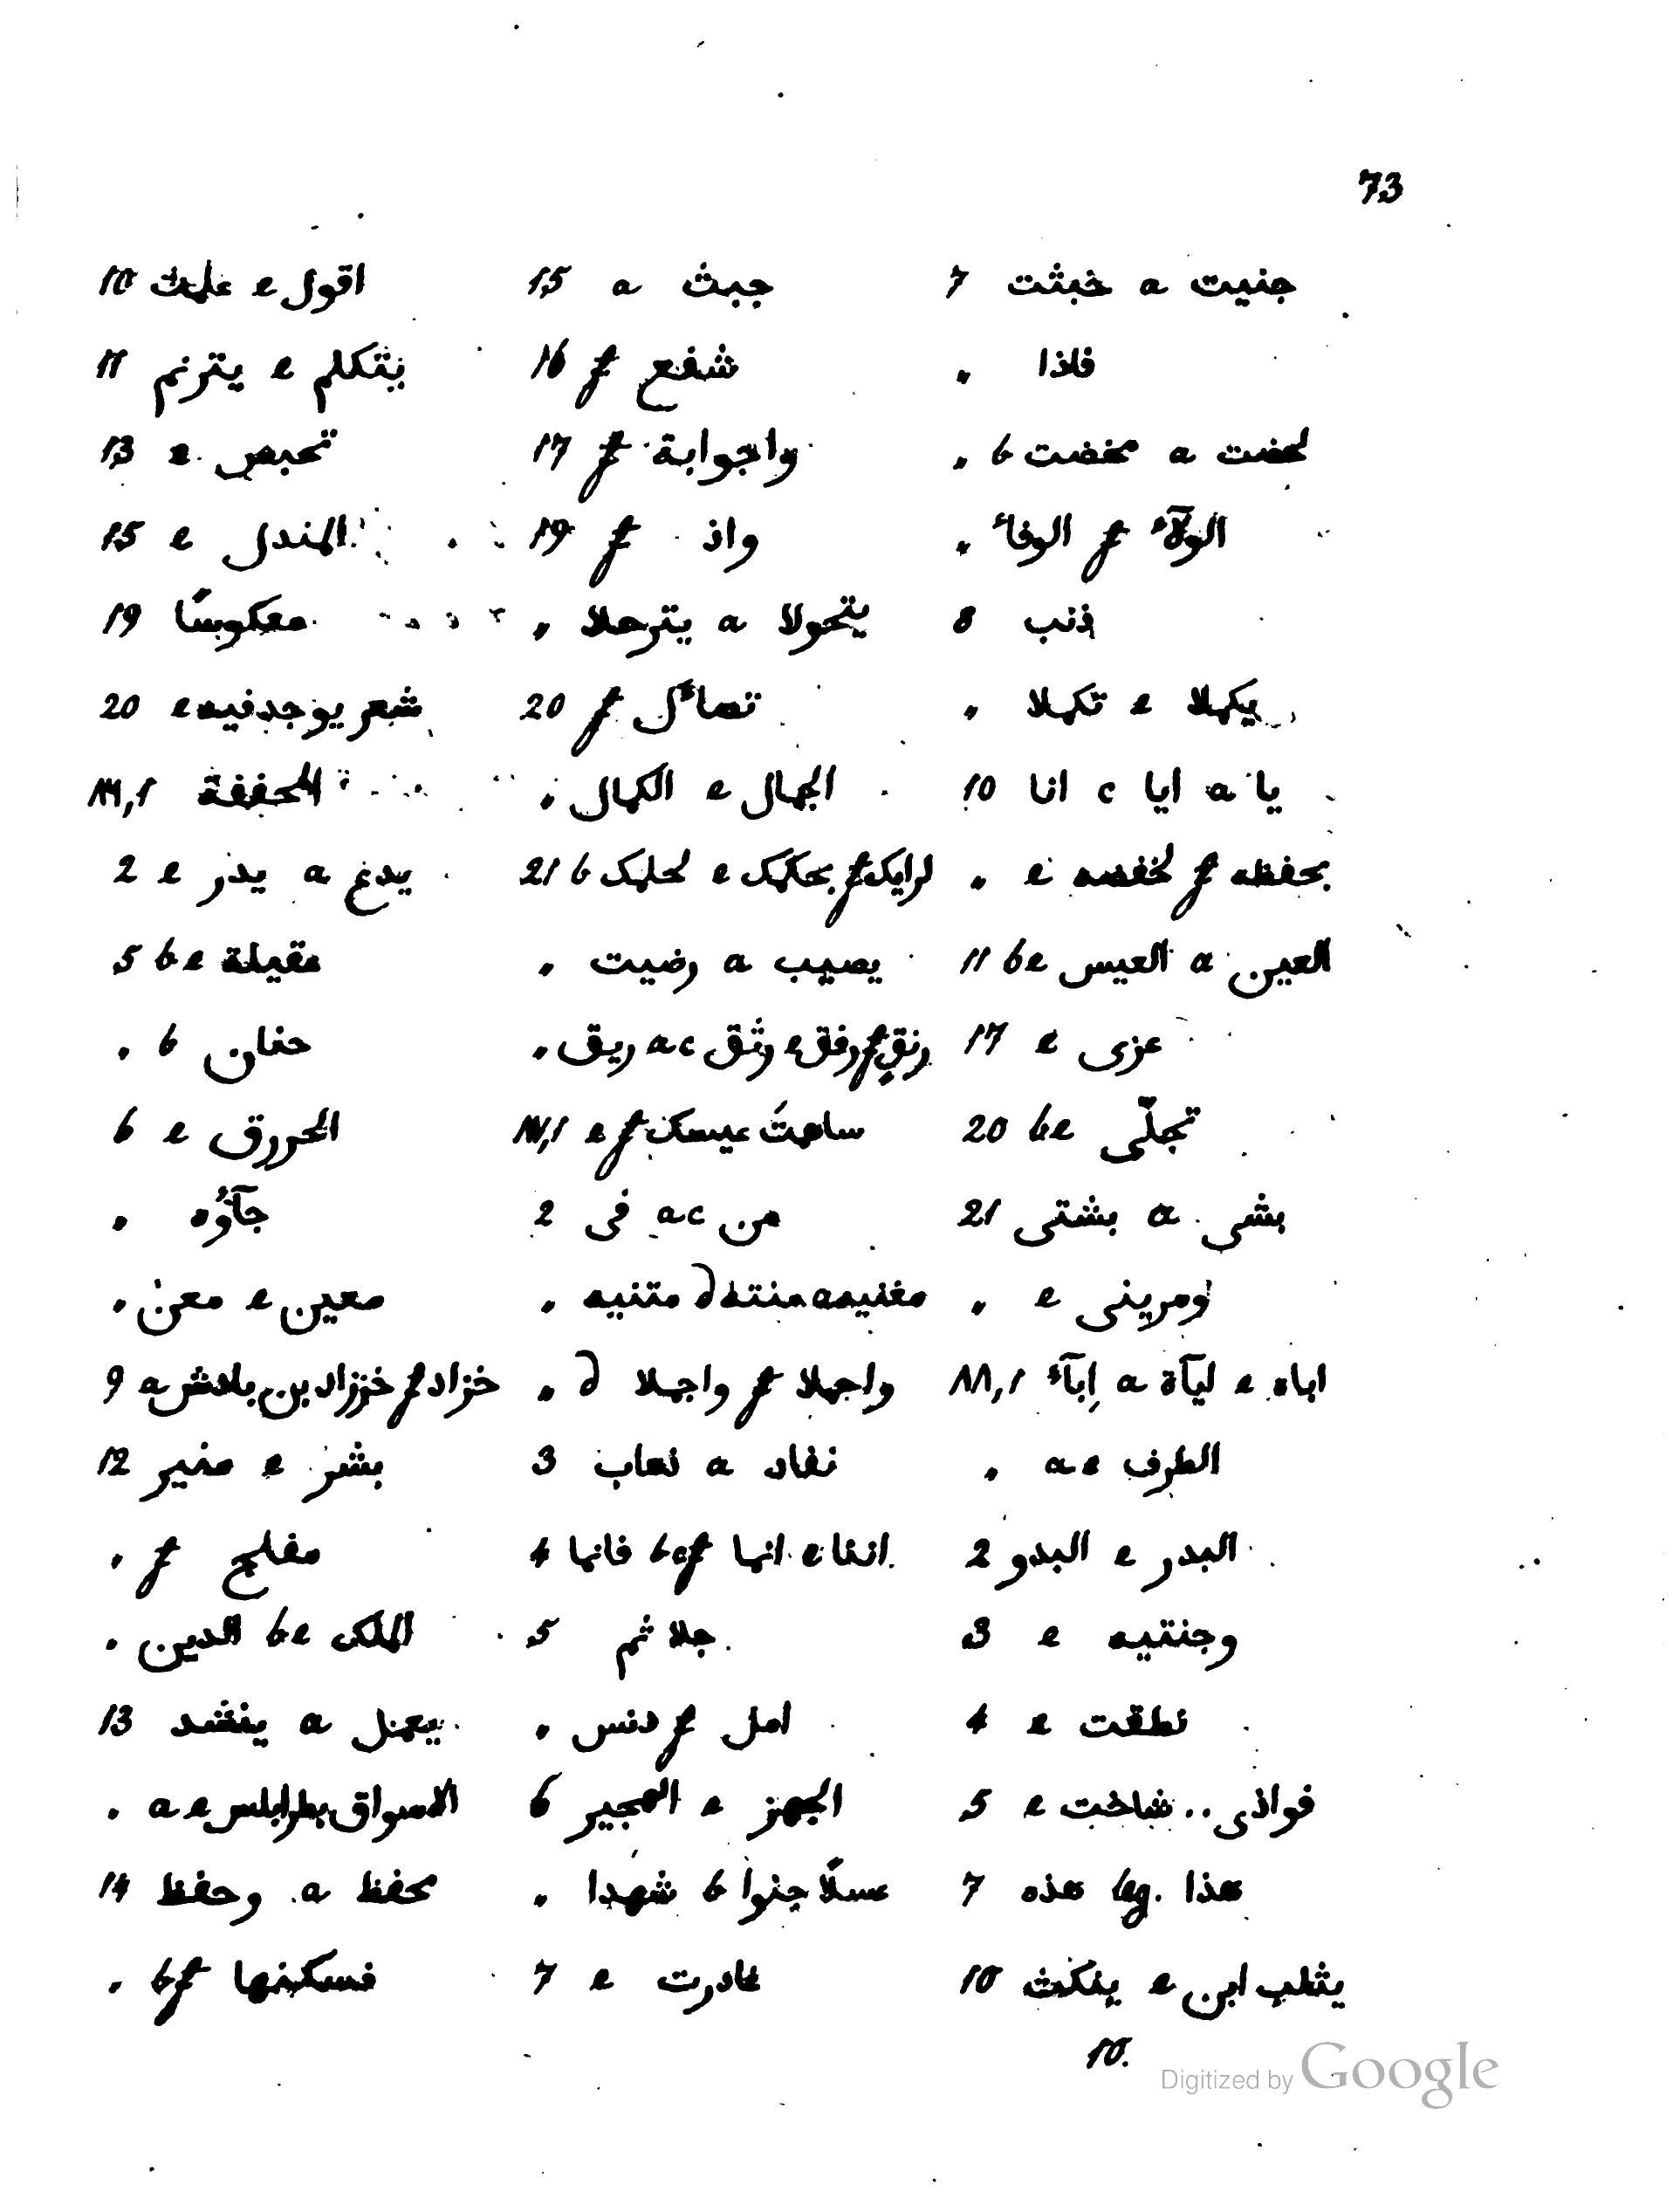 73
جنيت a خبثت 7
فاذا „
لحضت a محفضت b „
الولآء f الوفاء „
ذنب 8
يكهلا e تكهلا „
يا a ايا c انا 10
بحفظه f لخفضه e „
العين a العيس be 11
عزى e 17
تجلّى be 20
بشى a بشتى 21
ومرينى e „
اباه e ليآة a اِبآء 11,1
الطرف ae „
البدر e البدو 2
وجنتيه e 3
نطقت e 4
فواذى .. شاخت e 5
هذا leg. هذه 7
يثلب ابن e ينكث 10
جبث a 15
شفع f 16
واجوابة f 17
واذ f 19
يتحولا a يترحلا „
تصائل f 20
الجمال e الكمال „
لرايك f بحكمك e لحلمك b 21
يصيب a رضيت „
رنق f رفق e وثق ac ريق „
سامتَ عيسك f e IV,1
من ac فى 2
مغنيه a منته d متنيه „
واجملا f واجهلا d „
نفاد a نعاب 3
اننا e انما bcf فانما 4
جلا ثم 5
امل f دنس „
الجهز e الهجير 6
عسلًا جنوا b شهدا „
غادرت e 7
اقول e علمت 10
يتكلم e يترنم 11
تحبص e 13
المندل e 15
معكوسًا 19
شعر يوجد فيه e 20
المحففة 111,1
يدع a يدر e 2
مقيلة be 5
حنان b „
الحررق e 6
جآؤه „
معين e معن „
خزاد f خززاد بن بادش a 9
بشر e منير 12
مفلح f „
الملك be الدين „
يعمل a ينشد 13
الاسواق بطرابلس ae „
محفظ a وحفظ 14
فسكنها bf „
10.
Digitized by Google